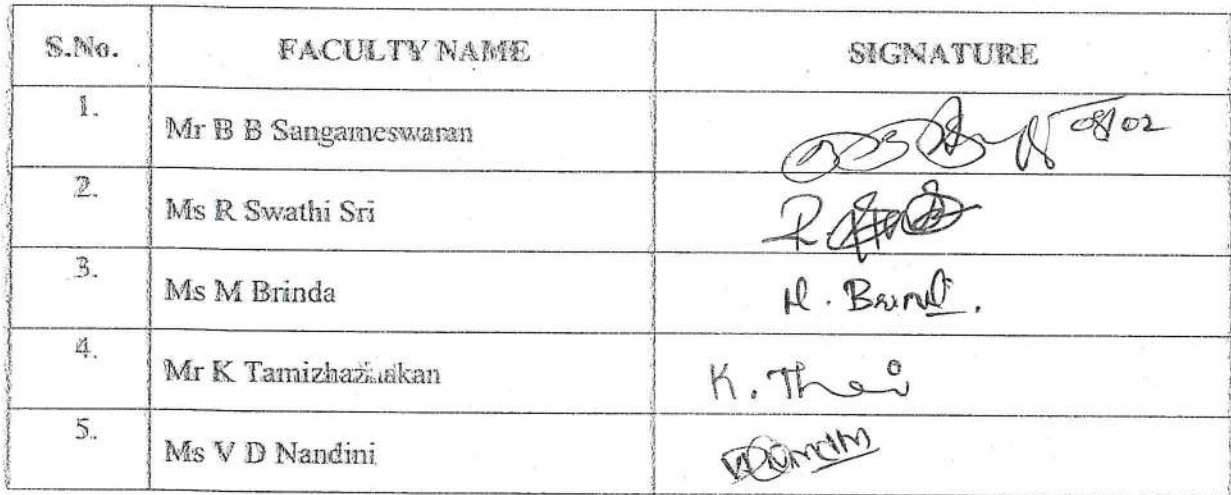 S.No. FACULTY NAME SIGNATURE
1. Mr B B Sangameswaran 08/02
2. Ms R Swathi Sri R.
3. Ms M Brinda M. Brind.
4. Mr K Tamizhazhakan K.
5. Ms V D Nandini